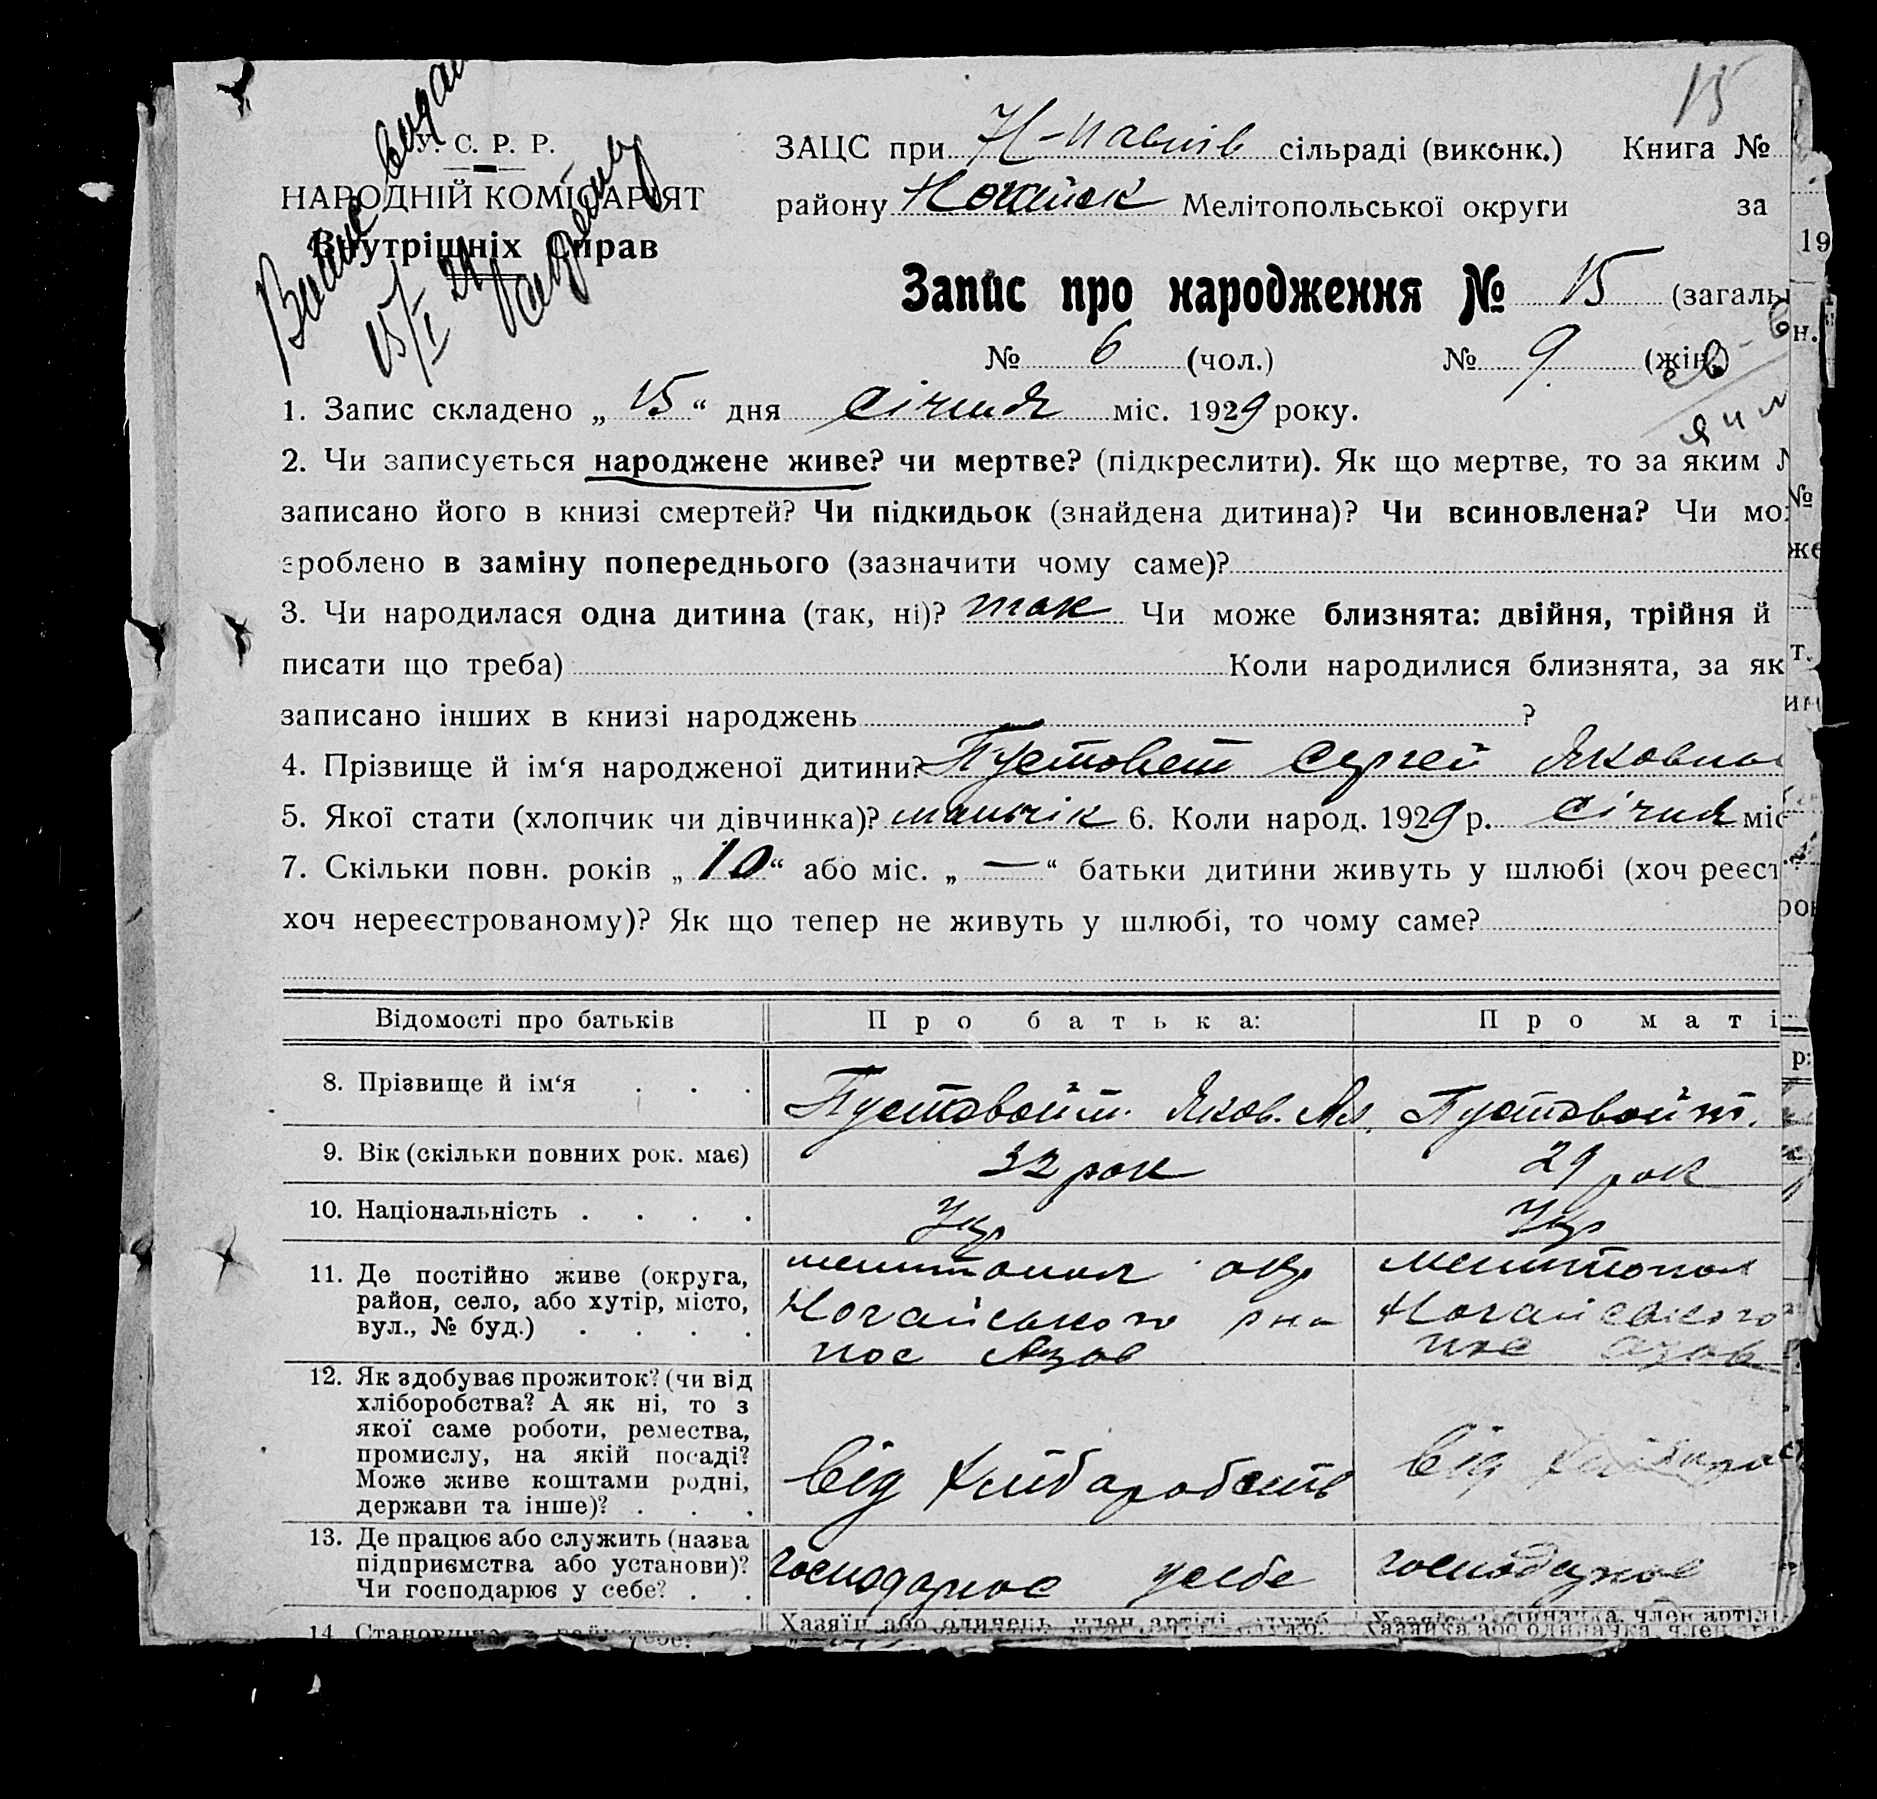 15
У. С. Р. Р.
НАРОДНІЙ КОМІСАРІЯТ
Внутрішніх Справ
15/I 29
ЗАЦС при Н-Павлів сільраді (виконк.) Книга №
району Ногайск Мелітопольської округи за
19
Запис про народження № 15 (загальн.
№ 6 (чол.) № 9 (жін.)
1. Запис складено „15“ дня січня міс. 1929 року.
2. Чи записується народжене живе? чи мертве? (підкреслити). Як що мертве, то за яким №
записано його в книзі смертей? Чи підкидьок (знайдена дитина)? Чи всиновлена? Чи мо
зроблено в заміну попереднього (зазначити чому саме)?
3. Чи народилася одна дитина (так, ні)? так Чи може близнята: двійня, трійня й
писати що треба) Коли народилися близнята, за як
записано інших в книзі народжень ?
4. Прізвище й ім‘я народженої дитини? Пустовет Сергей Яковл
5. Якої стати (хлопчик чи дівчинка)? мальчік 6. Коли народ. 1929 р. січня міс
7. Скільки повн. років „10“ або міс. „—“ батьки дитини живуть у шлюбі (хоч реєст
хоч нереєстрованому)? Як що тепер не живуть у шлюбі, то чому саме?
Відомості про батьків Про батька: Про маті
8. Прізвище й ім‘я . . . Пустовойт. Яков. Пустовойт.
9. Вік (скільки повних рок. має) 32 рок 29 рок
10. Національність . . . . Укр Укр
11. Де постійно живе (округа,
район, село, або хутір, місто,
вул., № буд.) . . . .
мелитопол окр
Ногайського рна
пос Азов
мелитопол
Ногайського
пос азов
12. Як здобуває прожиток? (чи від
хліборобства? А як ні, то з
якої саме роботи, ремества,
промислу, на якій посаді?
Може живе коштами родні,
держави та інше)? . . .
від хлібаробств
від
13. Де працює або служить (назва
підприємства або установи)?
Чи господарює у себе? . .
господарює усебе
господарює
14. Становище
Хазяїн або одинець, член артілі, служб.